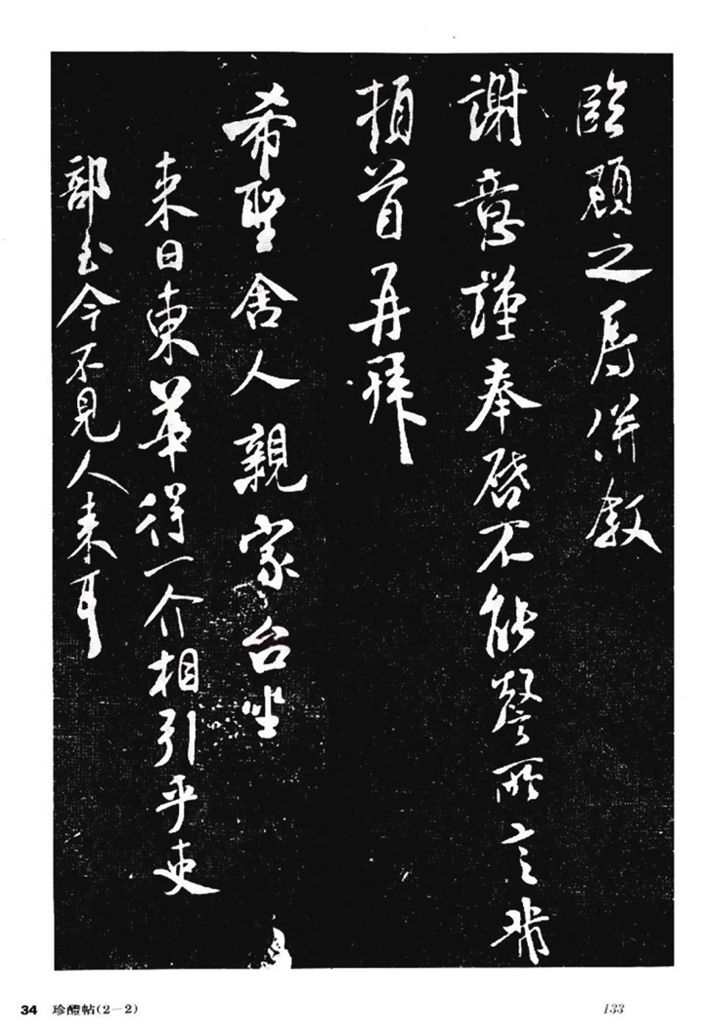 臨顧之辱併敘
謝意謹奉啓不能謦所言芾
頓首再拜
希聖舍人親家台坐
来日東華得一介相引乎吏
部至今不見人来耳
34 珍醴帖(2－2)
133